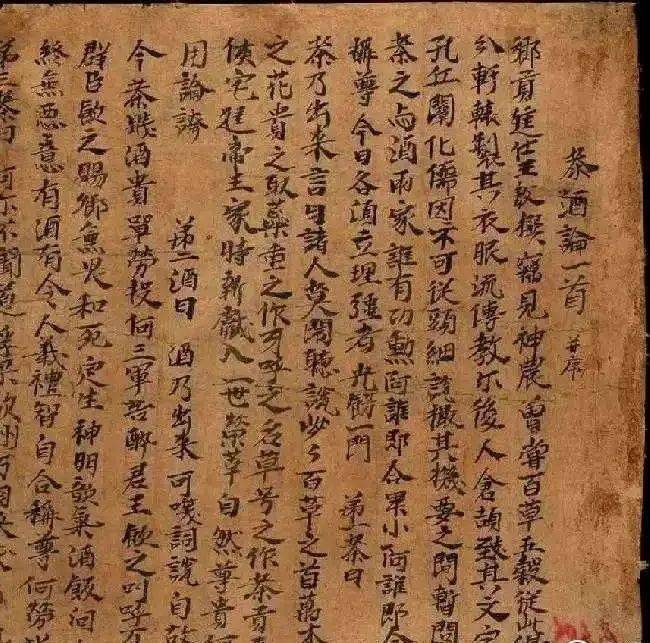 茶酒論一首 并序
鄉貢進士王敷撰 竊見神農曾嘗百草五穀從此
軒轅製其衣服流傳教示後人倉頡致其文
孔丘闡化儒因不可從頭細說撮其樞要之陌暫問
茶之與酒兩家誰有功勳阿誰即合卑小阿誰即合
稱尊今日各須立理強者光餝一門 第一茶曰
茶乃出來言曰諸人莫鬧聽說些々百草之首萬木
之花貴之取蘂重之作呼之名草号之作茶貢
侯宅造帝王家時新獻入一世榮華自然尊貴何
用論誇 第二酒曰 酒乃出來可噗詞說自故
今茶賤酒貴單勞投河三軍告醉君王飲之叫呼万
群臣飲之賜卿無畏和死定生神明歆氣酒飯向
終無惡意有酒有令人義禮智自合稱尊何勞
第三茶曰 阿你不聞道浮梁歙州万國來